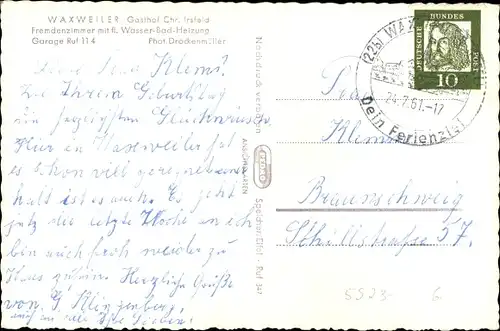 WAXWEILER Gasthof Chr. Irsfeld
Fremdenzimmer mit fl. Wasser-Bad-Heizung
Garage Ruf 114 Phot. Drockenmüller
Liebe Frau Klems!
Zu Ihrem Geburtstag
die herzlichsten Glückwünsche
Hier in Waxweiler hat
es schon viel geregnet und
kalt ist es auch. Es ist
jetzt die letzte Woche und ich
bin auch froh wieder zu
Haus zu sein. Herzliche Grüße
von G. Klingenberg
Nachdruck verboten
ANSICHTSKARTEN
Speicher/Eifel - Ruf 347
(22b) WAXWEILER
24.7.61.-17
Dein Ferienziel
DEUTSCHE BUNDESPOST
10
Frau
Klems
Braunschweig
Schillstraße 57.
5523- 6